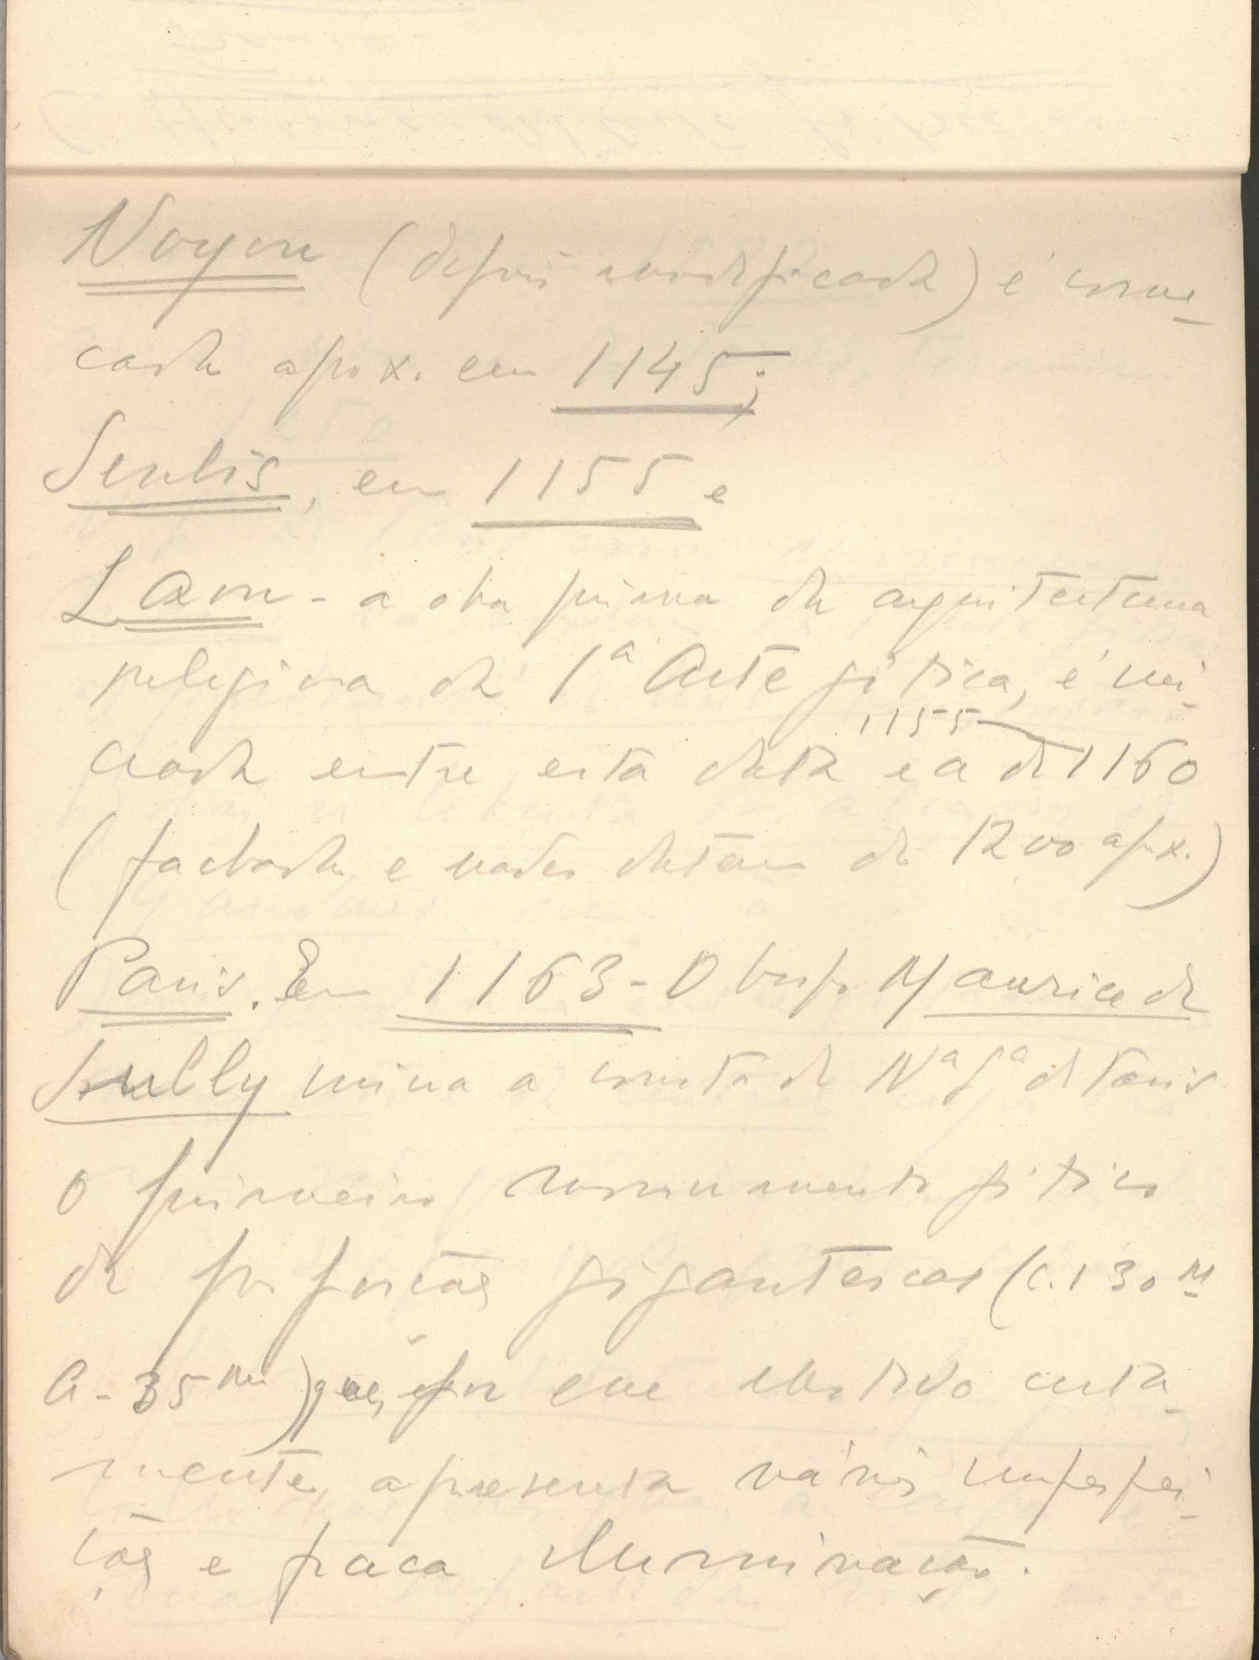 Noyon (depois modificada) é come-
cada aprox. em 1145;
Senlis, em 1155 e
Laon - a obra prima da arquitectura
religiosa da 1ª Arte gótica, é ini-
1155
ciada entre esta data e a de 1160
(fachada e naves datam de 1200 apx.)
Paris. Em 1163 - O bispo Maurice de
Sully inicia a const. de Nª Sª de Paris
o primeiro monumento gótico
de proporções gigantescas (C. 130 M
A - 35 m) que, por esse motivo certa-
mente, apresenta vários imperfei-
ções e fraca iluminação.